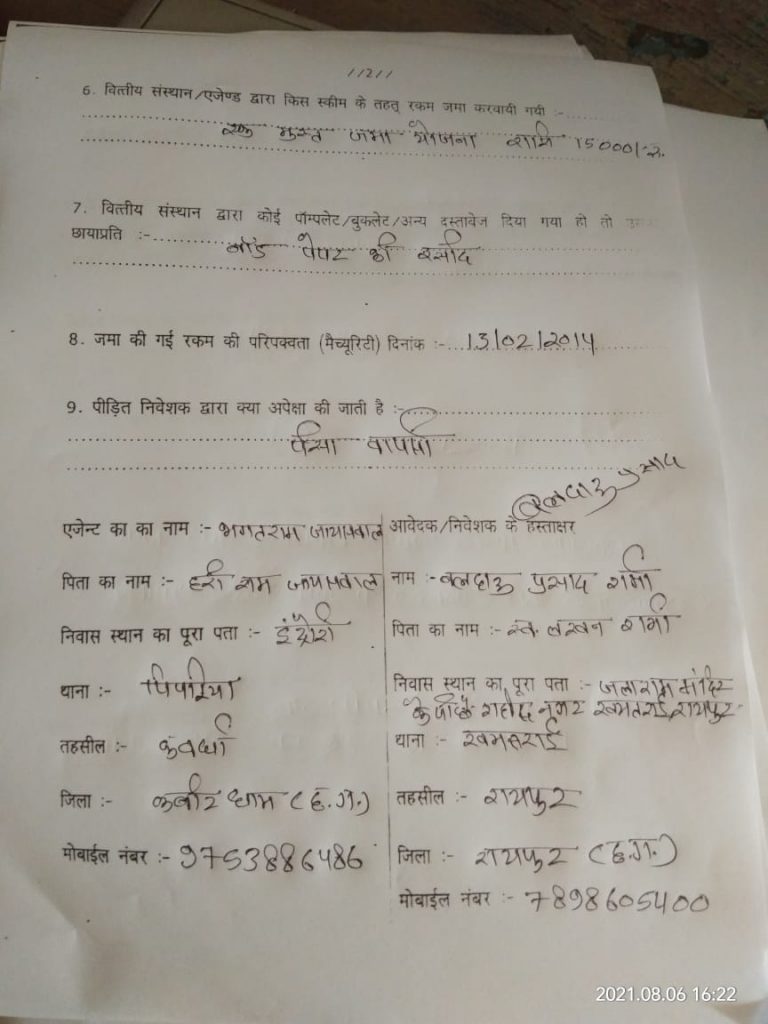 //2//
6. वित्तीय संस्थान/एजेण्ड द्वारा किस स्कीम के तहत् रकम जमा करवायी गयी :-
एक मुस्त जमा योजना राशि 15000/-रु.
7. वित्तीय संस्थान द्वारा कोई पॉम्पलेट/बुकलेट/अन्य दस्तावेज दिया गया हो तो
छायाप्रति :-
बांड पेपर की रसीद
8. जमा की गई रकम की परिपक्वता (मैच्यूरिटी) दिनांक :- 13/02/2014
9. पीड़ित निवेशक द्वारा क्या अपेक्षा की जाती है :-
पैसा वापसी
बलदाऊ प्रसाद
एजेन्ट का का नाम :- भगतराम जायसवाल
पिता का नाम :- हरी राम जायसवाल
निवास स्थान का पूरा पता :- इंदौरी
थाना :- पिपरिया
तहसील :- कवर्धा
जिला :- कबीर धाम (छ.ग.)
मोबाईल नंबर :- 9753886486
आवेदक/निवेशक के हस्ताक्षर
नाम :- बलदाऊ प्रसाद शर्मा
पिता का नाम :- स्व. लखन शर्मा
निवास स्थान का पूरा पता :- जलाराम मंदिर
के पीछे शहीद नगर खमतराई रायपुर
थाना :- खमतराई
तहसील :- रायपुर
जिला :- रायपुर (छ.ग.)
मोबाईल नंबर :- 7898605400
2021.08.06 16:22